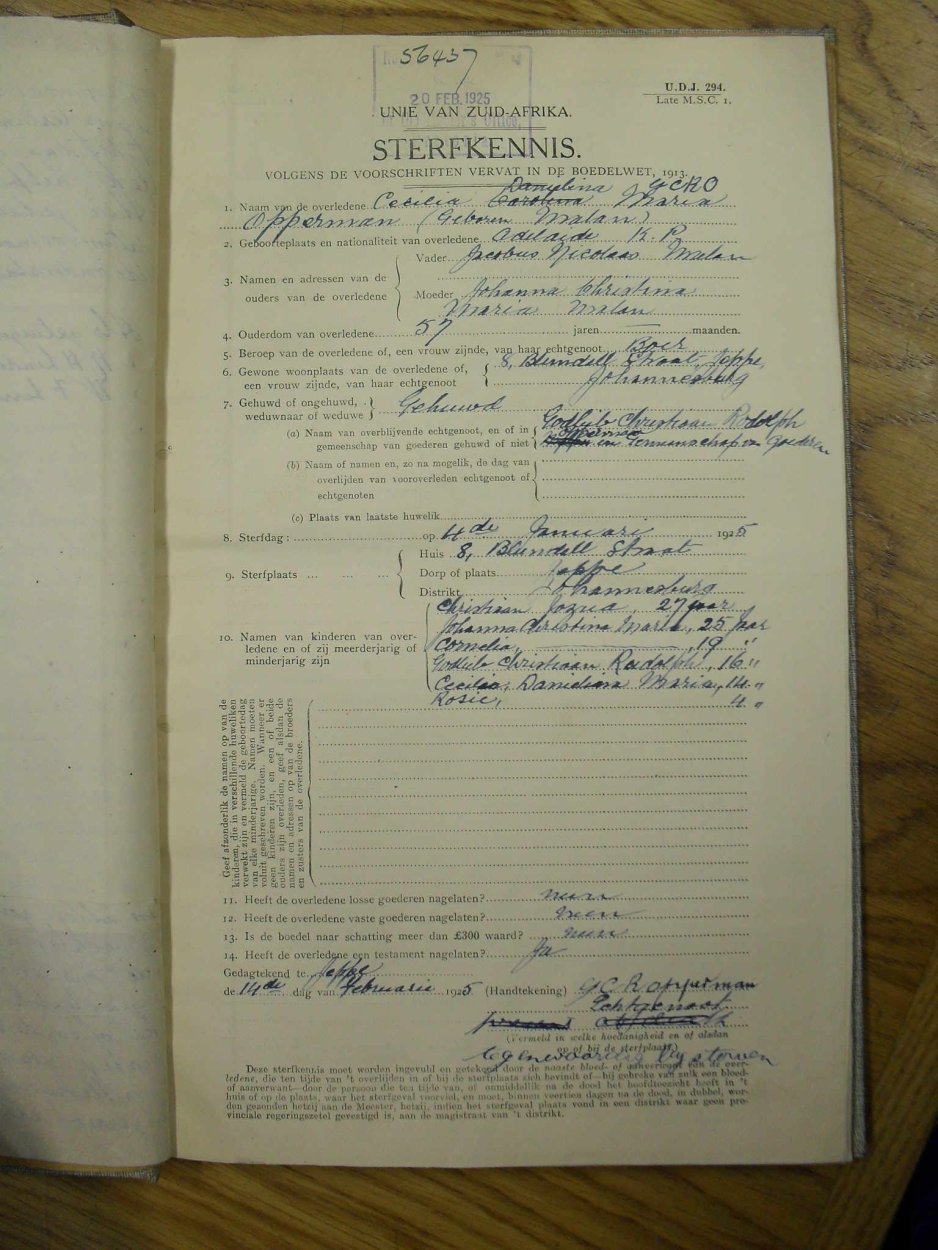 56437
20 FEB. 1925
U.D.J. 294.
Late M.S.C. 1.
UNIE VAN ZUID-AFRIKA.
STERFKENNIS.
VOLGENS DE VOORSCHRIFTEN VERVAT IN DE BOEDELWET, 1913.
Danielina GCRO
1. Naam van de overledene Cecilia Carolina Maria
Opperman (Geboren Malan)
2. Geboorteplaats en nationaliteit van overledene Adelaide K.P.
Vader Jacobus Nicolaas Malan
3. Namen en adressen van de ouders van de overledene
Moeder Johanna Christina
Maria Malan
4. Ouderdom van overledene 57 jaren — maanden.
5. Beroep van de overledene of, een vrouw zijnde, van haar echtgenoot Boer
6. Gewone woonplaats van de overledene of, 8, Blundell Straat, Jeppe,
een vrouw zijnde, van haar echtgenoot Johannesburg
7. Gehuwd of ongehuwd, weduwnaar of weduwe Gehuwd
(a) Naam van overblijvende echtgenoot, en of in Godlieb Christiaan Rodolph
gemeenschap van goederen gehuwd of niet Opperman in Gemeenschap van Goederen
(b) Naam of namen en, zo na mogelik, de dag van
overlijden van vooroverleden echtgenoot of
echtgenoten
(c) Plaats van laatste huwelik
8. Sterfdag : op 4de Januari 1925
Huis 8, Blundell Straat
9. Sterfplaats ... ... ... Dorp of plaats Jeppe
Distrikt Johannesburg
Christiaan Jozua, 27 jaar
Johanna Christina Maria, 25 jaar
10. Namen van kinderen van overledene en of zij meerderjarig of minderjarig zijn
Cornelia, 19 "
Godlieb Christiaan Rudolph, 16 "
Cecilia, Danielina Maria, 14 "
Rosie, 4 "
Geef afzonderlik de namen op van de
kinderen, die in verschillende huweliken
verwekt zijn en vermeld de geboortedag
van elke minderjarige. Namen moeten
voluit geschreven worden. Wanneer er
geen kinderen zijn, en een of beide
ouders zijn overleden, geef alsdan de
namen en adressen op van de broeders
en zusters van de overledene.
11. Heeft de overledene losse goederen nagelaten? neen
12. Heeft de overledene vaste goederen nagelaten? neen
13. Is de boedel naar schatting meer dan £300 waard? neen
14. Heeft de overledene een testament nagelaten? Ja
Gedagtekend te Jeppe
de 14de dag van Februarie 1925 (Handtekening) GCR Opperman
Echtgenoot
(Vermeld in welke hoedanigheid en of alsdan
op of bij de sterfplaats)
tegenwoordig bij sterven
Deze sterfkennis moet worden ingevuld en getekend door de naaste bloed- of aanverwant van de over-
ledene, die ten tijde van 't overlijden in of bij de sterfplaats zich bevindt of—bij gebreke van zulk een bloed-
of aanverwant—door de persoon die ten tijde van, of onmiddellik na de dood het hoofdtoezicht heeft in 't
huis of op de plaats, waar het sterfgeval voorviel, en moet, binnen veertien dagen na de dood, in dubbel, wor-
den gezonden hetzij aan de Meester, hetzij, indien het sterfgeval plaats vond in een distrikt waar geen pro-
vinciale regeringszetel gevestigd is, aan de magistraat van 't distrikt.